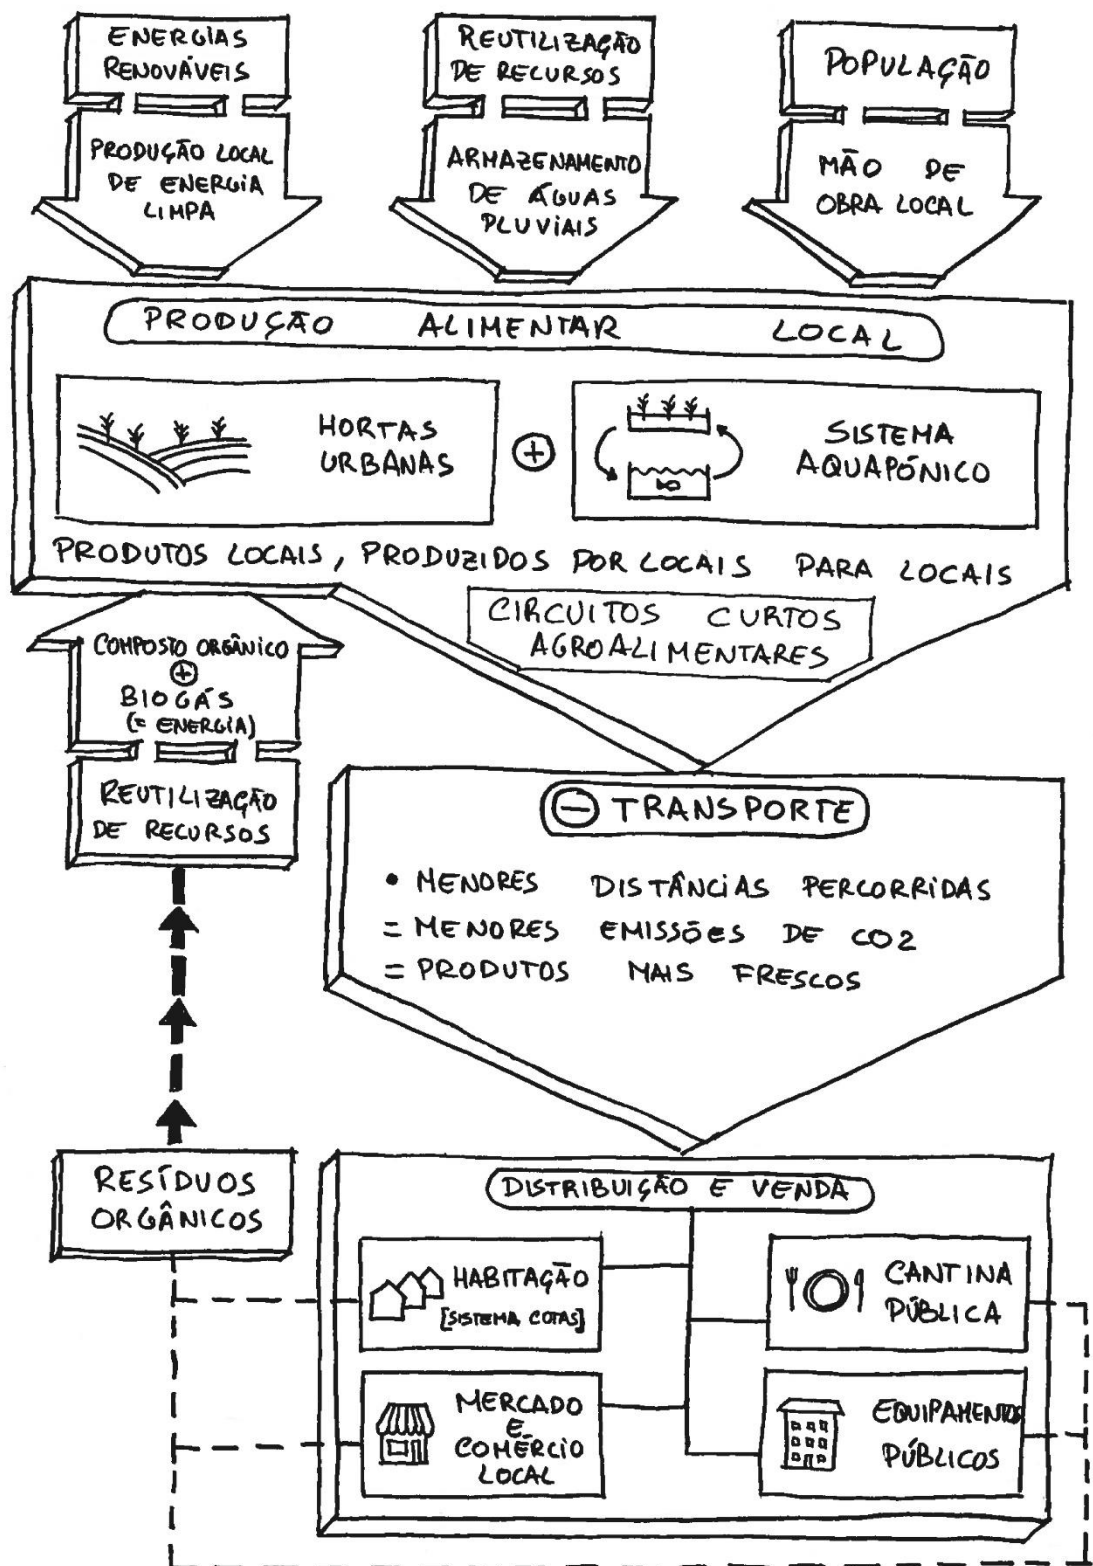 ENERGIAS
RENOVÁVEIS
PRODUÇÃO LOCAL
DE ENERGIA
LIMPA
REUTILIZAÇÃO
DE RECURSOS
ARMAZENAMENTO
DE ÁGUAS
PLUVIAIS
POPULAÇÃO
MÃO DE
OBRA LOCAL
PRODUÇÃO ALIMENTAR LOCAL
HORTAS
URBANAS
+
SISTEMA
AQUAPÓNICO
PRODUTOS LOCAIS, PRODUZIDOS POR LOCAIS PARA LOCAIS
CIRCUITOS CURTOS
AGROALIMENTARES
COMPOSTO ORGÂNICO
+
BIOGÁS
(= ENERGIA)
REUTILIZAÇÃO
DE RECURSOS
- TRANSPORTE
• MENORES DISTÂNCIAS PERCORRIDAS
= MENORES EMISSÕES DE CO2
= PRODUTOS MAIS FRESCOS
RESÍDUOS
ORGÂNICOS
DISTRIBUIÇÃO E VENDA
HABITAÇÃO
[SISTEMA COTAS]
CANTINA
PÚBLICA
MERCADO
E
COMÉRCIO
LOCAL
EQUIPAMENTOS
PÚBLICOS